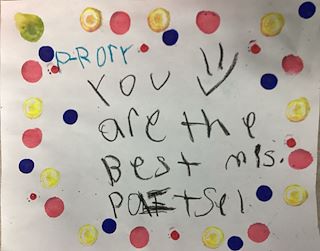 P-Rory
You
are the
Best mrs.
Poetsel